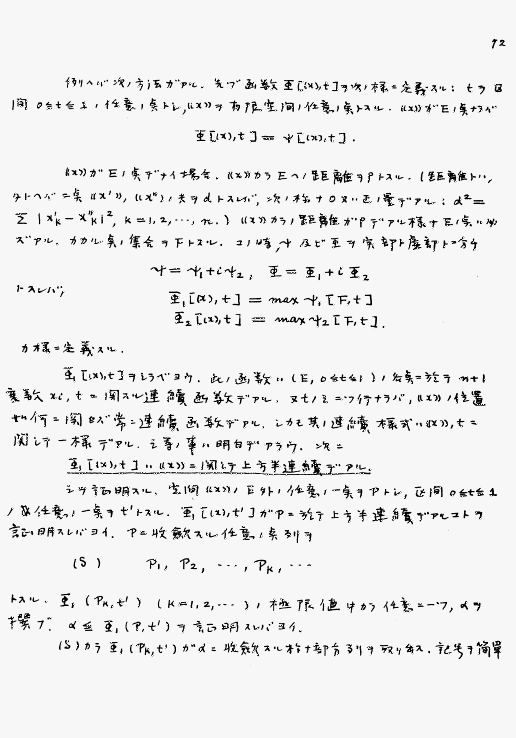 92
例ヘバ次ノ方法ガアル. 先ヅ函数 Φ[(x),t] ヲ次ノ様ニ定義スル: t ヲ区
間 0≦t≦1 ノ任意ノ点トシ, (x) ヲ有限空間ノ任意ノ点トスル. (x) ガ E ノ点ナラバ
Φ[(x),t] = ψ[(x),t].
(x) ガ E ノ点デナイ場合. (x) カラ E ヘノ距離ヲ ρ トスル. (距離トハ,
タトヘバ二点 (x'), (x'') ノ夫ヲ d トスレバ, 次ノ様ナ 0 又ハ正ノ量デアル: d²=
Σ |x'ₖ − x''ₖ|², k=1,2,…,n.) (x) カラノ距離ガ ρ デアル様ナ E ノ点ハ必
ズアル. カカル点ノ集合ヲ F トスル. コノ時, ψ 及ビ Φ ヲ実部ト虚部トニ分ケ
ψ = ψ₁+iψ₂, Φ = Φ₁+iΦ₂
トスレバ,
Φ₁[(x),t] = max ψ₁[F,t]
Φ₂[(x),t] = max ψ₂[F,t].
カ様ニ定義スル.
Φ₁[(x),t] ヲシラベヨウ. 此ノ函数ハ (E, 0≦t≦1) ノ各点ニ於テ n+1
変数 xᵢ, t ニ関スル連続函数デアル. 又 t ノミニツイテナラバ, (x) ノ位置
如何ニ関セズ常ニ連続函数デアル. シカモ其ノ連続様式ハ (x), t ニ
関シテ一様デアル. 之等ノ事ハ明白デアラウ. 次ニ
Φ₁[(x),t] ハ (x) ニ関シテ上方半連続デアル.
之ヲ証明スル. 空間 (x) ノ E 外ノ任意ノ一点ヲ P トシ, 区間 0≦t≦1
ノ任意ノ一点ヲ t' トスル. Φ₁[(x),t'] ガ P ニ於テ上方半連続デアルコトヲ
証明スレバヨイ. P ニ收斂スル任意ノ点列ヲ
(S) P₁, P₂, …, Pₖ, …
トスル. Φ₁(Pₖ,t') (k=1,2,…) ノ極限値中カラ任意ニ一ツ, α ヲ
撰ブ. α ≦ Φ₁(P,t') ヲ証明スレバヨイ.
(S) カラ Φ₁(Pₖ,t') ガ α ニ收斂スル様ナ部分列ヲ取リ出ス. 記号ヲ簡單